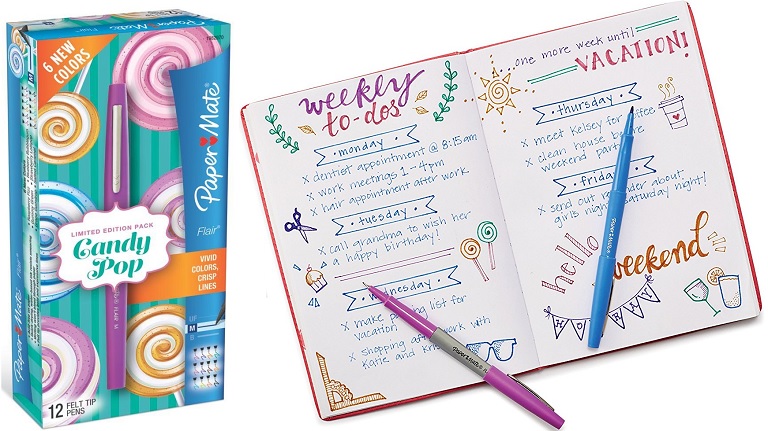 6 NEW
COLORS
Paper Mate
Flair
LIMITED EDITION PACK
Candy
Pop
VIVID
COLORS,
CRISP
LINES
M
12 FELT TIP
PENS
Paper Mate
weekly
to-dos
monday
x dentist appointment @ 8:15am
x work meetings 1-4pm
x hair appointment after work
tuesday
x call grandma to wish her
a happy birthday!
wednesday
x make packing list for
vacation
x shopping after work with
Katie and
Paper Mate
...one more week until
VACATION!
thursday
x meet Kelsey for coffee
x clean house before
weekend
friday
x send out about
girls night saturday night!
Hello
weekend
HOORAY
Paper Mate